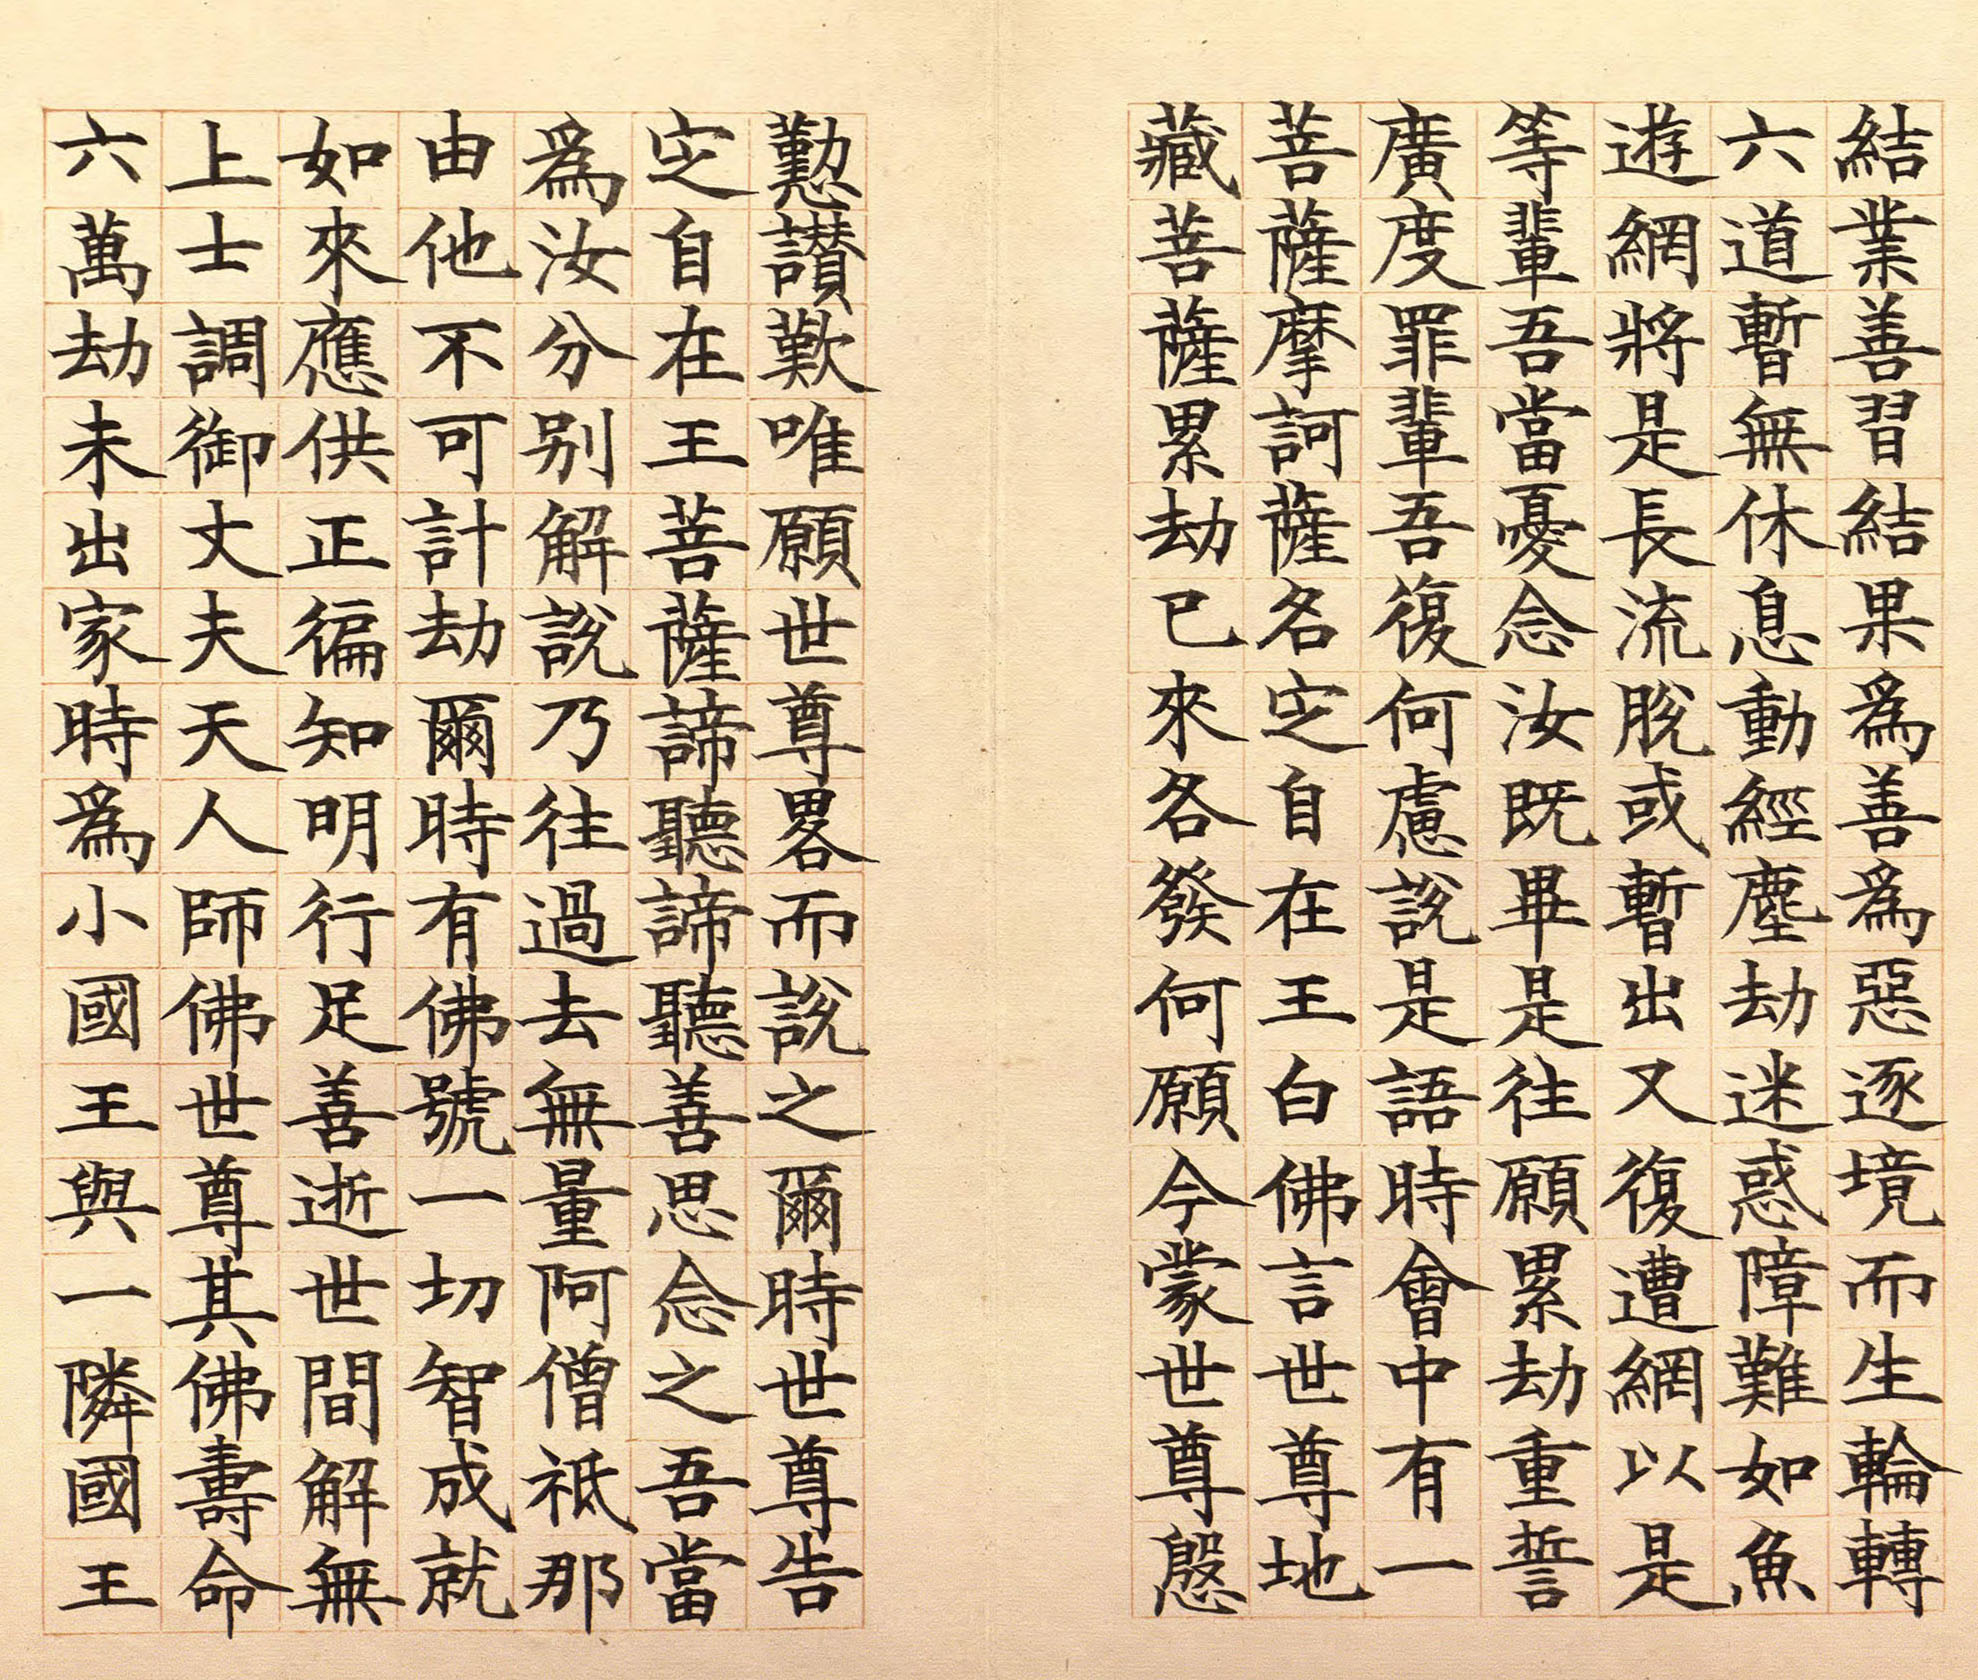 結業善習結果為善為惡逐境而生輪轉
六道暫無休息動經塵劫迷惑障難如魚
遊網將是長流脫或暫出又復遭網以是
等輩吾當憂念汝既畢是往願累劫重誓
廣度罪輩吾復何慮說是語時會中有一
菩薩摩訶薩名㝎自在王白佛言世尊地
藏菩薩累劫已來各發何願今蒙世尊慇
懃讃歎唯願世尊畧而說之爾時世尊告
㝎自在王菩薩諦聽諦聽善思念之吾當
為汝分別解說乃往過去無量阿僧祇那
由他不可計劫爾時有佛號一切智成就
如來應供正徧知明行足善逝世間解無
上士調御丈夫天人師佛世尊其佛壽命
六萬劫未出家時為小國王與一隣國王